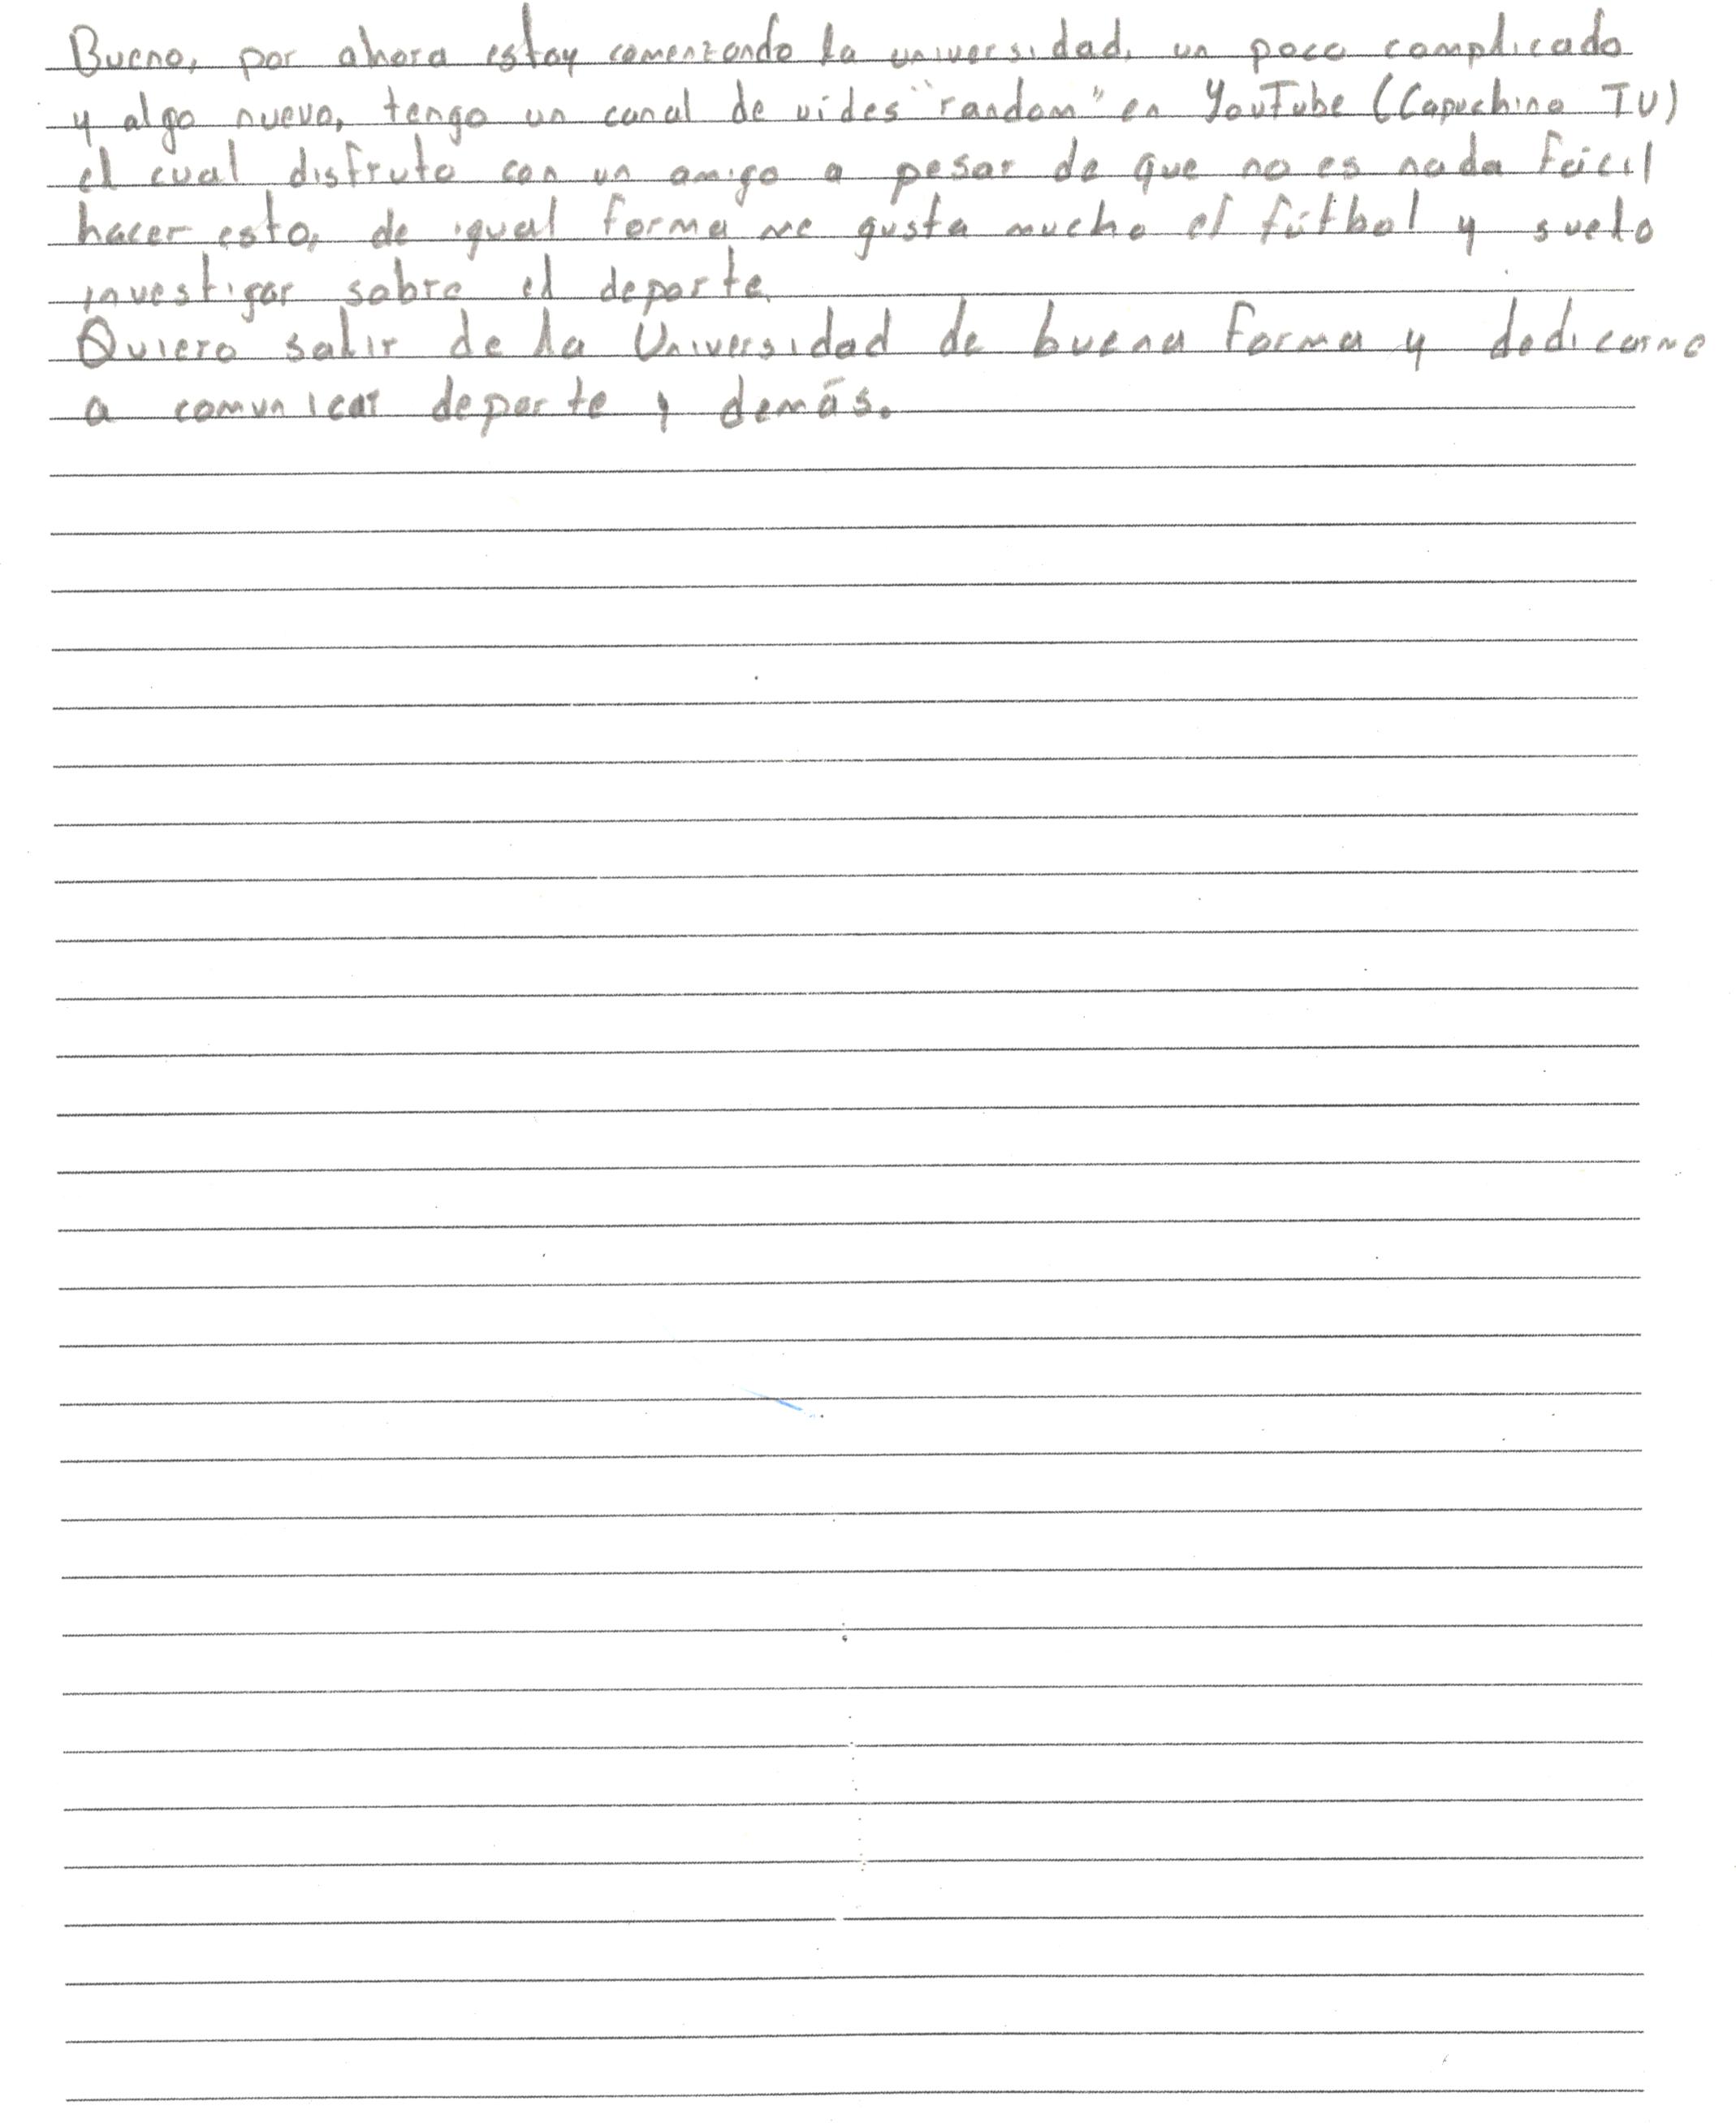 Bueno, por ahora estoy comenzando la universidad, un poco complicado
y algo nuevo, tengo un canal de vides "random" en YouTube (Capuchino TV)
el cual disfruto con un amigo a pesar de que no es nada fácil
hacer esto, de igual forma me gusta mucho el fútbol y suelo
investigar sobre el deporte.
Quiero salir de la Universidad de buena forma y dedicarme
a comunicar deporte y demás.